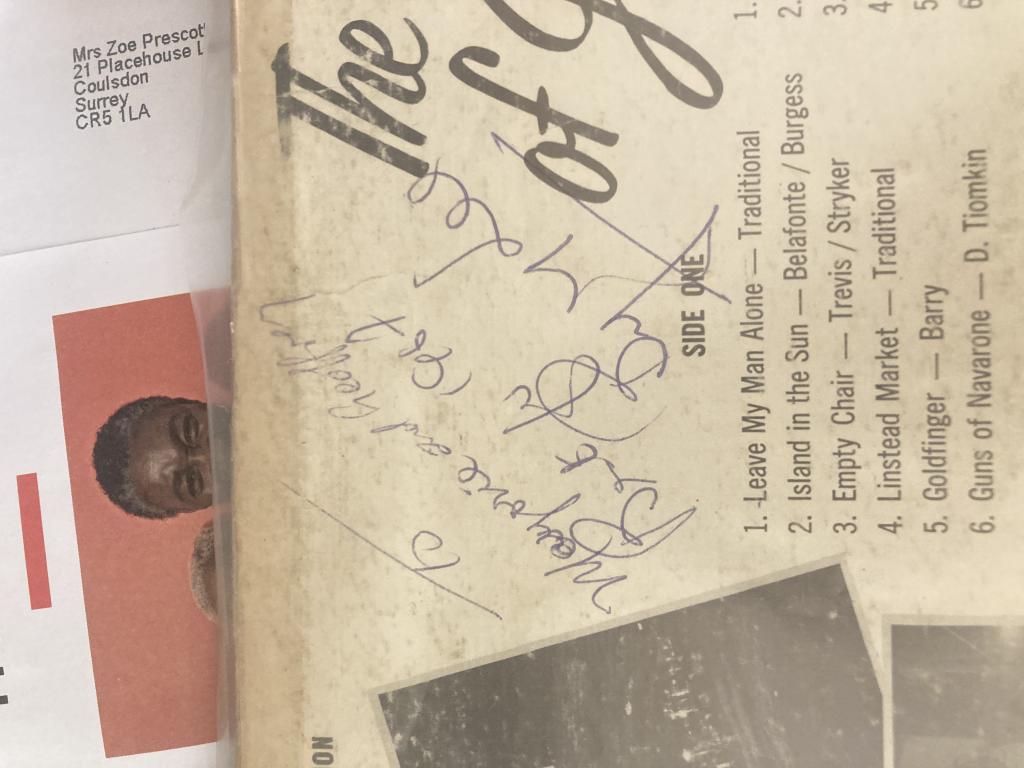 Mrs Zoe Prescot
21 Placehouse L
Coulsdon
Surrey
CR5 1LA
The
of
To
Lee
SIDE ONE
1. Leave My Man Alone — Traditional
2. Island in the Sun — Belafonte / Burgess
3. Empty Chair — Trevis / Stryker
4. Linstead Market — Traditional
5. Goldfinger — Barry
6. Guns of Navarone — D. Tiomkin
1.
2.
3.
4
5
6
ON